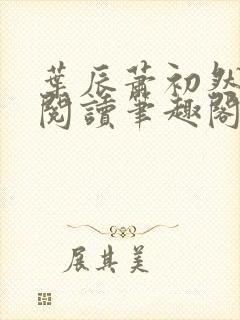 葉辰蕭初然
閱讀筆趣閣
展其美